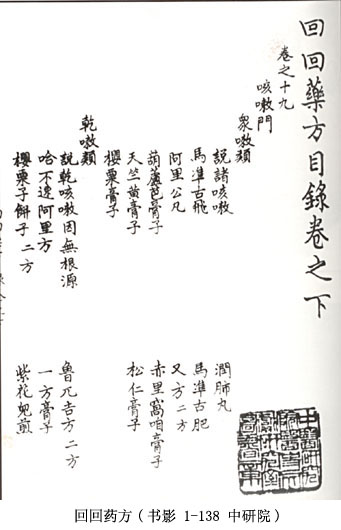 回回藥方目錄卷之下
卷之十九
咳嗽門
衆嗽類
說諸咳嗽 潤肺丸
馬準古飛 馬準古肥
阿里公凡 又方二方
葫蘆芭膏子 赤里窩咱膏子
天竺黃膏子 松仁膏子
櫻粟膏子
乾嗽類
說乾咳嗽因無根源 魯兀吉方二方
哈不阿里方 一方膏子
櫻粟子餅子二方 紫花兒煎
回回药方(书影 1-138 中研院)